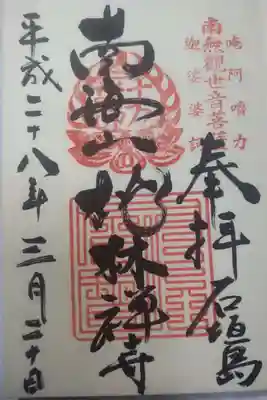 南無觀世音菩薩
唵阿嚕力
迦娑婆訶
奉拝 石垣島
南海山 桃林禅寺
平成二十八年三月二十日